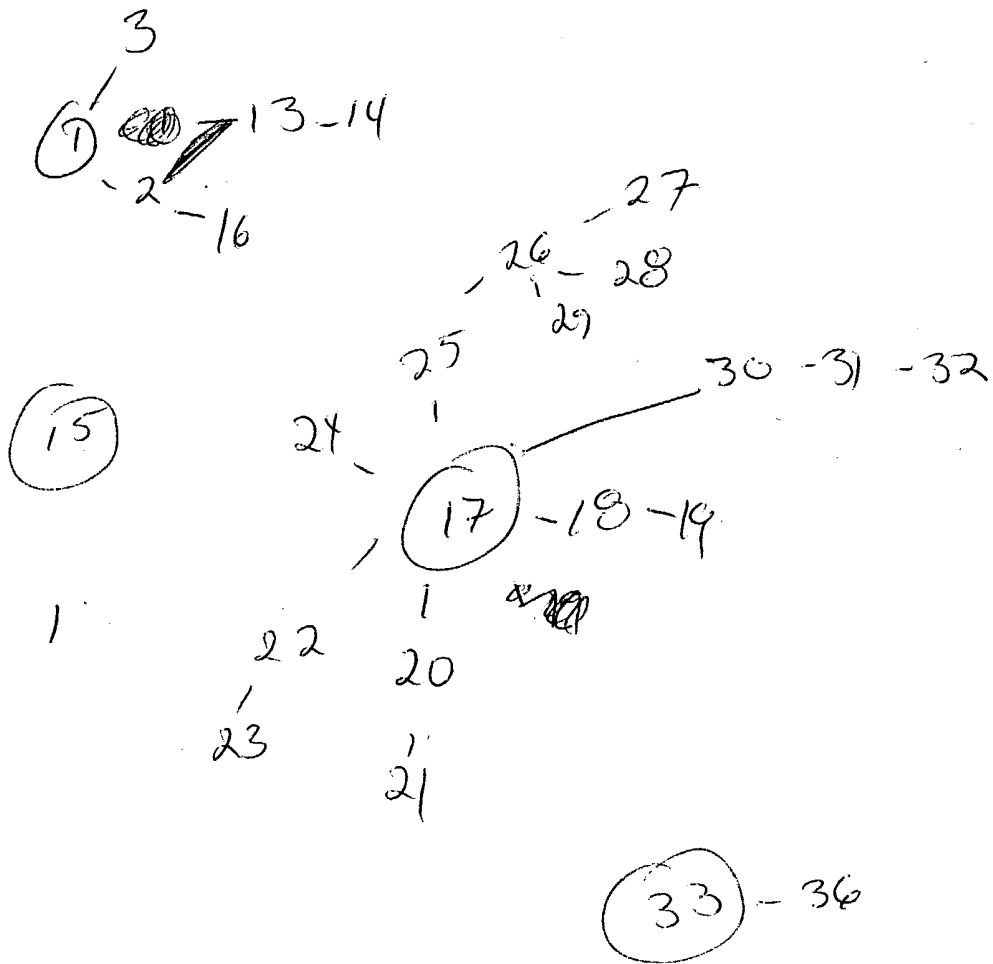 3
1
13-14
2
16
27
26
28
29
25
30-31-32
15
24
17-18-19
1
22
20
23
21
33-36